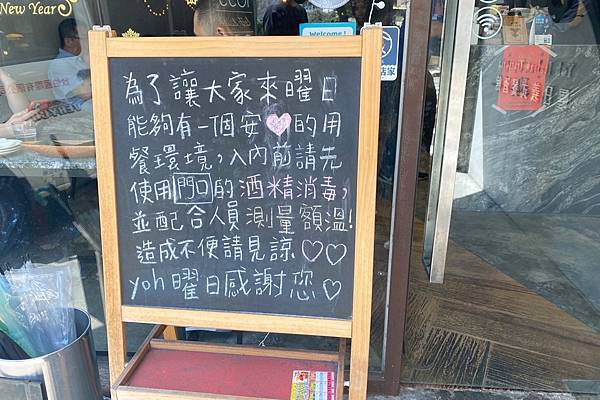 New Year
Welcome!
為了讓大家來曜日
能夠有一個安♡的用
餐環境,入內前請先
使用門口的酒精消毒,
並配合人員測量額溫!
造成不便請見諒、♡♡
yoh曜日感謝您♡
店家